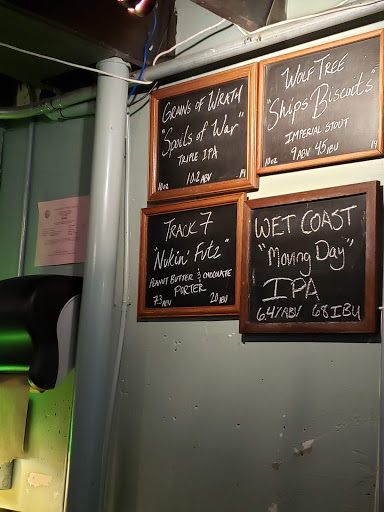 GRAINS OF WRATH
"Spoils of War"
TRIPLE IPA
10oz 10.2 ABV 14
WOLF TREE
"Ships Biscuits"
IMPERIAL STOUT
10oz 9 ABV 45 IBU 14
TRACK 7
"Nukin' Futz"
PEANUT BUTTER & CHOCOLATE
PORTER
7.3 ABV 20 IBU
WET COAST
"Moving Day"
IPA
6.4% ABV 68 IBU